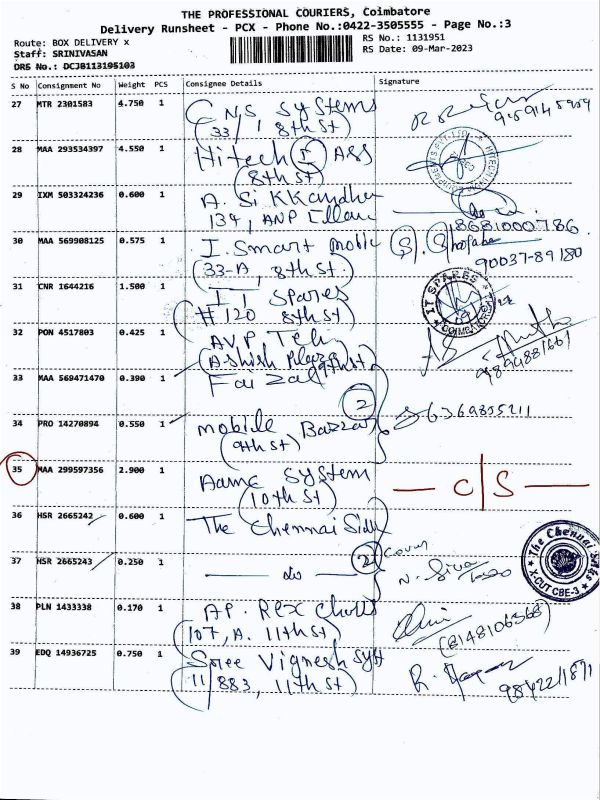 THE PROFESSIONAL COURIERS, Coimbatore
Delivery Runsheet - PCX - Phone No.:0422-3505555 - Page No.:3
Route: BOX DELIVERY x
RS No.: 1131951
Staff: SRINIVASAN
RS Date: 09-Mar-2023
DRS No.: DCJ0113195103
S No Consignment No Weight PCS Consignee Details Signature
27 MTR 2301583 4.750 1 C N S Systems
(33/1 8th St)
28 MAA 293534397 4.550 1 Hitech (I) ASS
(8th St)
29 IXM 503324236 0.600 1 A. Si KKandhu
134, ANP
8681000786
30 MAA 569908125 0.575 1 I. Smart Mobile
(33-A, 8th St)
90037-89180
31 CNR 1644216 1.500 1 IT Spares
(#120 8th St)
IT SPARES
COIMBATORE
32 PON 4517803 0.425 1 AVP Tech
(Ashish Plaza 9th St)
9894881661
33 MAA 569471470 0.390 1 Faizal
2
34 PRO 14270894 0.550 1 mobile Bazzar
(9th St)
6369835211
35 MAA 299597356 2.900 1 Aamc System
(10th St)
— C/S —
36 HSR 2665242 0.600 1 The Chennai Silks
37 HSR 2665243 0.250 1 — do —
2 Cover
N. Siva
The Chennai Silks
CUT CBE-3
38 PLN 1433338 0.170 1 AP. Rex
(107, A. 11th St)
(8148106568)
39 EDQ 14936725 0.750 1 Sree Vignesh Syst
(11/883, 11th St)
9842211871